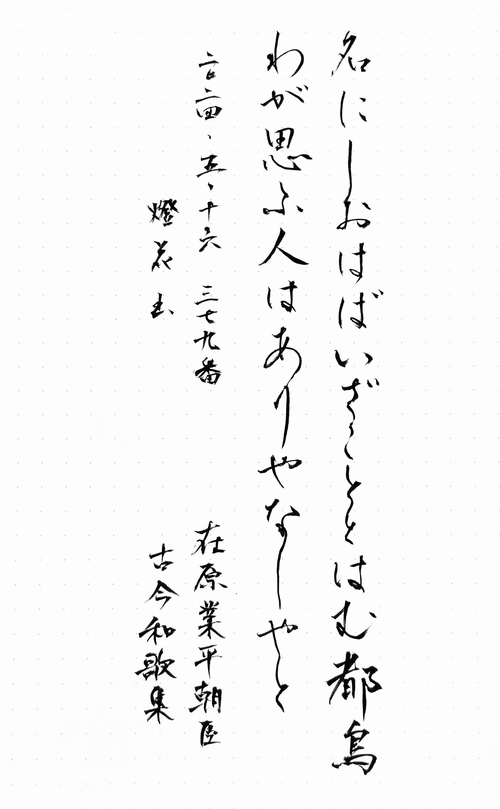 名にしおはばいざこととはむ都鳥
わが思ふ人はありやなしやと
二〇二四、五、十六 三七九番
在原業平朝臣
燈花
古今和歌集